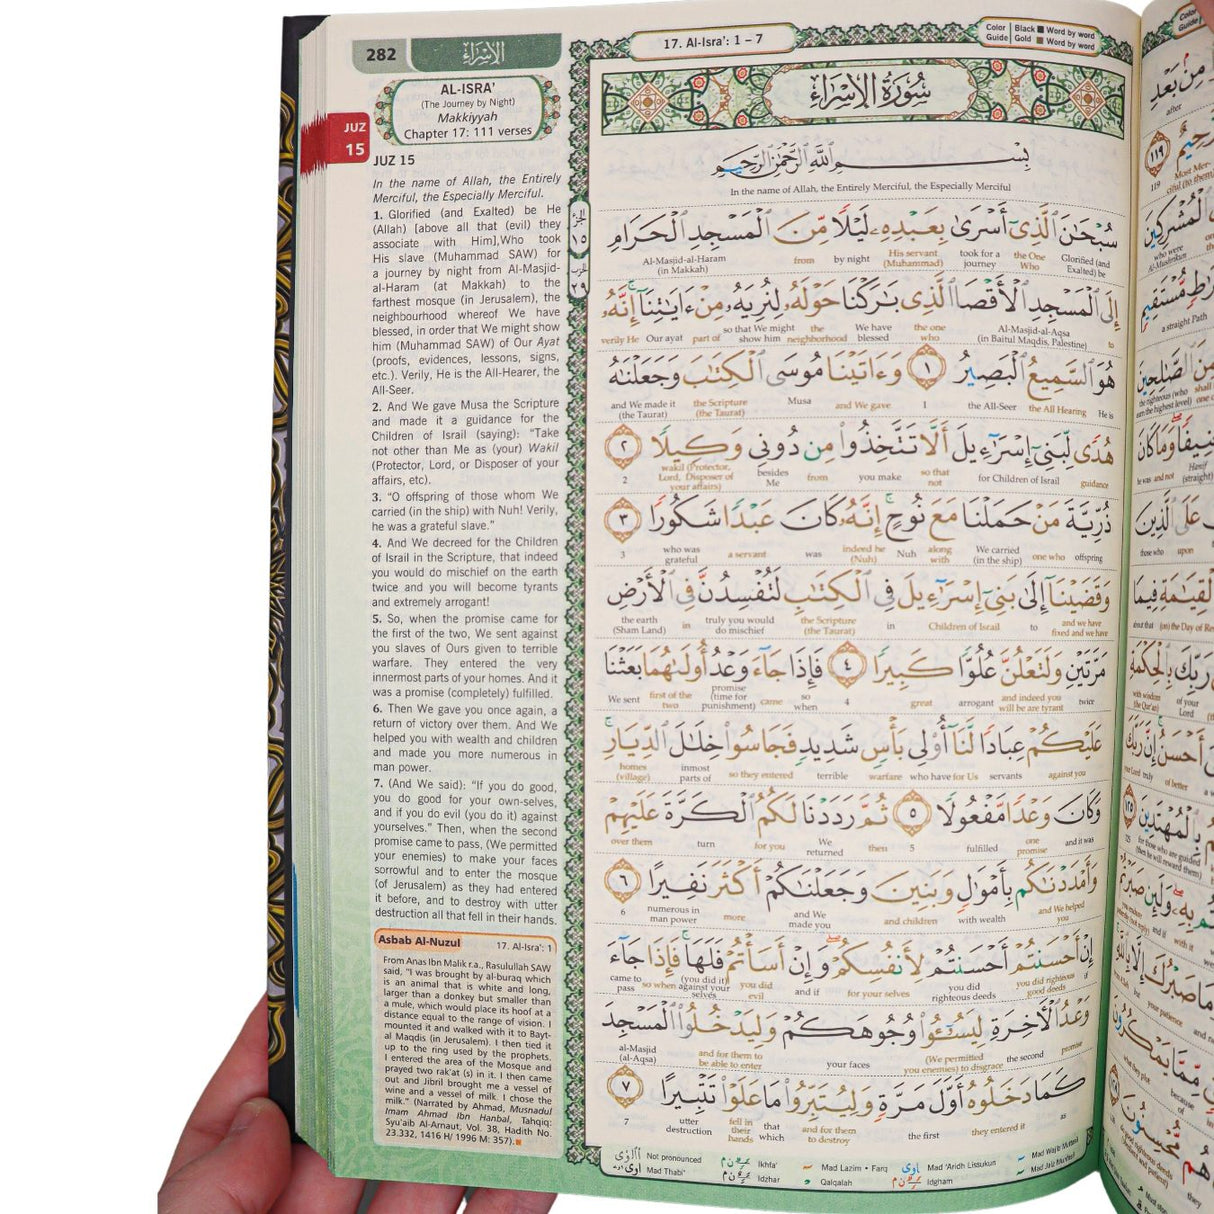 282
الإسراء
AL-ISRA'
(The Journey by Night)
Makkiyyah
Chapter 17: 111 verses
JUZ
15
JUZ 15
In the name of Allah, the Entirely
Merciful, the Especially Merciful.
1. Glorified (and Exalted) be He
(Allah) [above all that (evil) they
associate with Him],Who took
His slave (Muhammad SAW) for
a journey by night from Al-Masjid-
al-Haram (at Makkah) to the
farthest mosque (in Jerusalem), the
neighbourhood whereof We have
blessed, in order that We might show
him (Muhammad SAW) of Our Ayat
(proofs, evidences, lessons, signs,
etc.). Verily, He is the All-Hearer, the
All-Seer.
2. And We gave Musa the Scripture
and made it a guidance for the
Children of Israil (saying): “Take
not other than Me as (your) Wakil
(Protector, Lord, or Disposer of your
affairs, etc).
3. “O offspring of those whom We
carried (in the ship) with Nuh! Verily,
he was a grateful slave.”
4. And We decreed for the Children
of Israil in the Scripture, that indeed
you would do mischief on the earth
twice and you will become tyrants
and extremely arrogant!
5. So, when the promise came for
the first of the two, We sent against
you slaves of Ours given to terrible
warfare. They entered the very
innermost parts of your homes. And it
was a promise (completely) fulfilled.
6. Then We gave you once again, a
return of victory over them. And We
helped you with wealth and children
and made you more numerous in
man power.
7. (And We said): “If you do good,
you do good for your own-selves,
and if you do evil (you do it) against
yourselves.” Then, when the second
promise came to pass, (We permitted
your enemies) to make your faces
sorrowful and to enter the mosque
(of Jerusalem) as they had entered
it before, and to destroy with utter
destruction all that fell in their hands.
Asbab Al-Nuzul 17. Al-Isra': 1
From Anas Ibn Malik r.a., Rasulullah SAW
said, “I was brought by al-buraq which
is an animal that is white and long,
larger than a donkey but smaller than
a mule, which would place its hoof at a
distance equal to the range of vision. I
mounted it and walked with it to Bayt-
al Maqdis (in Jerusalem). I then tied it
up to the ring used by the prophets.
I entered the area of the Mosque and
prayed two rak'at (s) in it. I then came
out and Jibril brought me a vessel of
wine and a vessel of milk. I chose the
milk.” (Narrated by Ahmad, Musnadul
Imam Ahmad Ibn Hanbal, Tahqiq:
Syu'aib Al-Arnaut, Vol. 38, Hadith No.
23.332, 1416 H/ 1996 M: 357).
17. Al-Isra': 1 – 7
Color Guide Black Word by word
Gold Word by word
سُورَةُ الْإِسْرَاءِ
بِسْمِ اللَّهِ الرَّحْمَٰنِ الرَّحِيمِ
In the name of Allah, the Entirely Merciful, the Especially Merciful
الجزء ١٥
الحزب ٢٩
سُبْحَٰنَ ٱلَّذِىٓ أَسْرَىٰ بِعَبْدِهِۦ لَيْلًا مِّنَ ٱلْمَسْجِدِ ٱلْحَرَامِ
Al-Masjid-al-Haram (in Makkah) from by night His servant (Muhammad) took for a journey the One Who Glorified (and Exalted) be
إِلَى ٱلْمَسْجِدِ ٱلْأَقْصَا ٱلَّذِى بَٰرَكْنَا حَوْلَهُۥ لِنُرِيَهُۥ مِنْ ءَايَٰتِنَآ إِنَّهُۥ
verily He Our ayat part of so that We might show him the neighborhood We have blessed the one who Al-Masjid-al-Aqsa (in Baitul Maqdis, Palestine) to
هُوَ ٱلسَّمِيعُ ٱلْبَصِيرُ ١ وَءَاتَيْنَا مُوسَى ٱلْكِتَٰبَ وَجَعَلْنَٰهُ
and We made it (the Taurat) the Scripture (the Taurat) Musa and We gave 1 the All-Seer the All Hearing He is
هُدًى لِّبَنِىٓ إِسْرَٰٓءِيلَ أَلَّا تَتَّخِذُوا۟ مِن دُونِى وَكِيلًا ٢
2 wakil (Protector, Lord, Disposer of your affairs) besides Me from you make so that not for Children of Israil guidance
ذُرِّيَّةَ مَنْ حَمَلْنَا مَعَ نُوحٍ إِنَّهُۥ كَانَ عَبْدًا شَكُورًا ٣
3 who was grateful a servant was indeed he (Nuh) Nuh along with We carried (in the ship) one who offspring
وَقَضَيْنَآ إِلَىٰ بَنِىٓ إِسْرَٰٓءِيلَ فِى ٱلْكِتَٰبِ لَتُفْسِدُنَّ فِى ٱلْأَرْضِ
the earth (Sham Land) in truly you would do mischief the Scripture (the Taurat) in Children of Israil to and we have fixed and we have
مَرَّتَيْنِ وَلَتَعْلُنَّ عُلُوًّا كَبِيرًا ٤ فَإِذَا جَآءَ وَعْدُ أُولَىٰهُمَا بَعَثْنَا
We sent first of the two promise (time for punishment) came so when 4 great arrogant and indeed you will be are tyrant twice
عَلَيْكُمْ عِبَادًا لَّنَآ أُو۟لِى بَأْسٍ شَدِيدٍ فَجَاسُوا۟ خِلَٰلَ ٱلدِّيَارِ
homes (village) inmost parts of so they entered terrible warfare who have for Us servants against you
وَكَانَ وَعْدًا مَّفْعُولًا ٥ ثُمَّ رَدَدْنَا لَكُمُ ٱلْكَرَّةَ عَلَيْهِمْ
over them turn for you We returned then 5 fulfilled one promise and it was
وَأَمْدَدْنَٰكُم بِأَمْوَٰلٍ وَبَنِينَ وَجَعَلْنَٰكُمْ أَكْثَرَ نَفِيرًا ٦
6 numerous in man power more and We made you and children with wealth and We helped you
إِنْ أَحْسَنتُمْ أَحْسَنتُمْ لِأَنفُسِكُمْ وَإِنْ أَسَأْتُمْ فَلَهَا فَإِذَا جَآءَ
came to pass so when (you did it) against your selves you did evil and if for your selves you did righteous deeds you did righteous good deeds if
وَعْدُ ٱلْءَاخِرَةِ لِيَسُۥٓـُٔوا۟ وُجُوهَكُمْ وَلِيَدْخُلُوا۟ ٱلْمَسْجِدَ
al-Masjid (al-Aqsa) and for them to be able to enter your faces (We permitted you enemies) to disgrace the second promise
كَمَا دَخَلُوهُ أَوَّلَ مَرَّةٍ وَلِيُتَبِّرُوا۟ مَا عَلَوْا۟ تَتْبِيرًا ٧
7 utter destruction fell in their hands that which and for them to destroy the first they entered it as
Not pronounced Ikhfa' Mad Lazim • Farq Mad 'Aridh Lissukun Mad Wajib Muttasil
Mad Thabi' Idzhar Qalqalah Idgham Mad Jaiz Munfasil